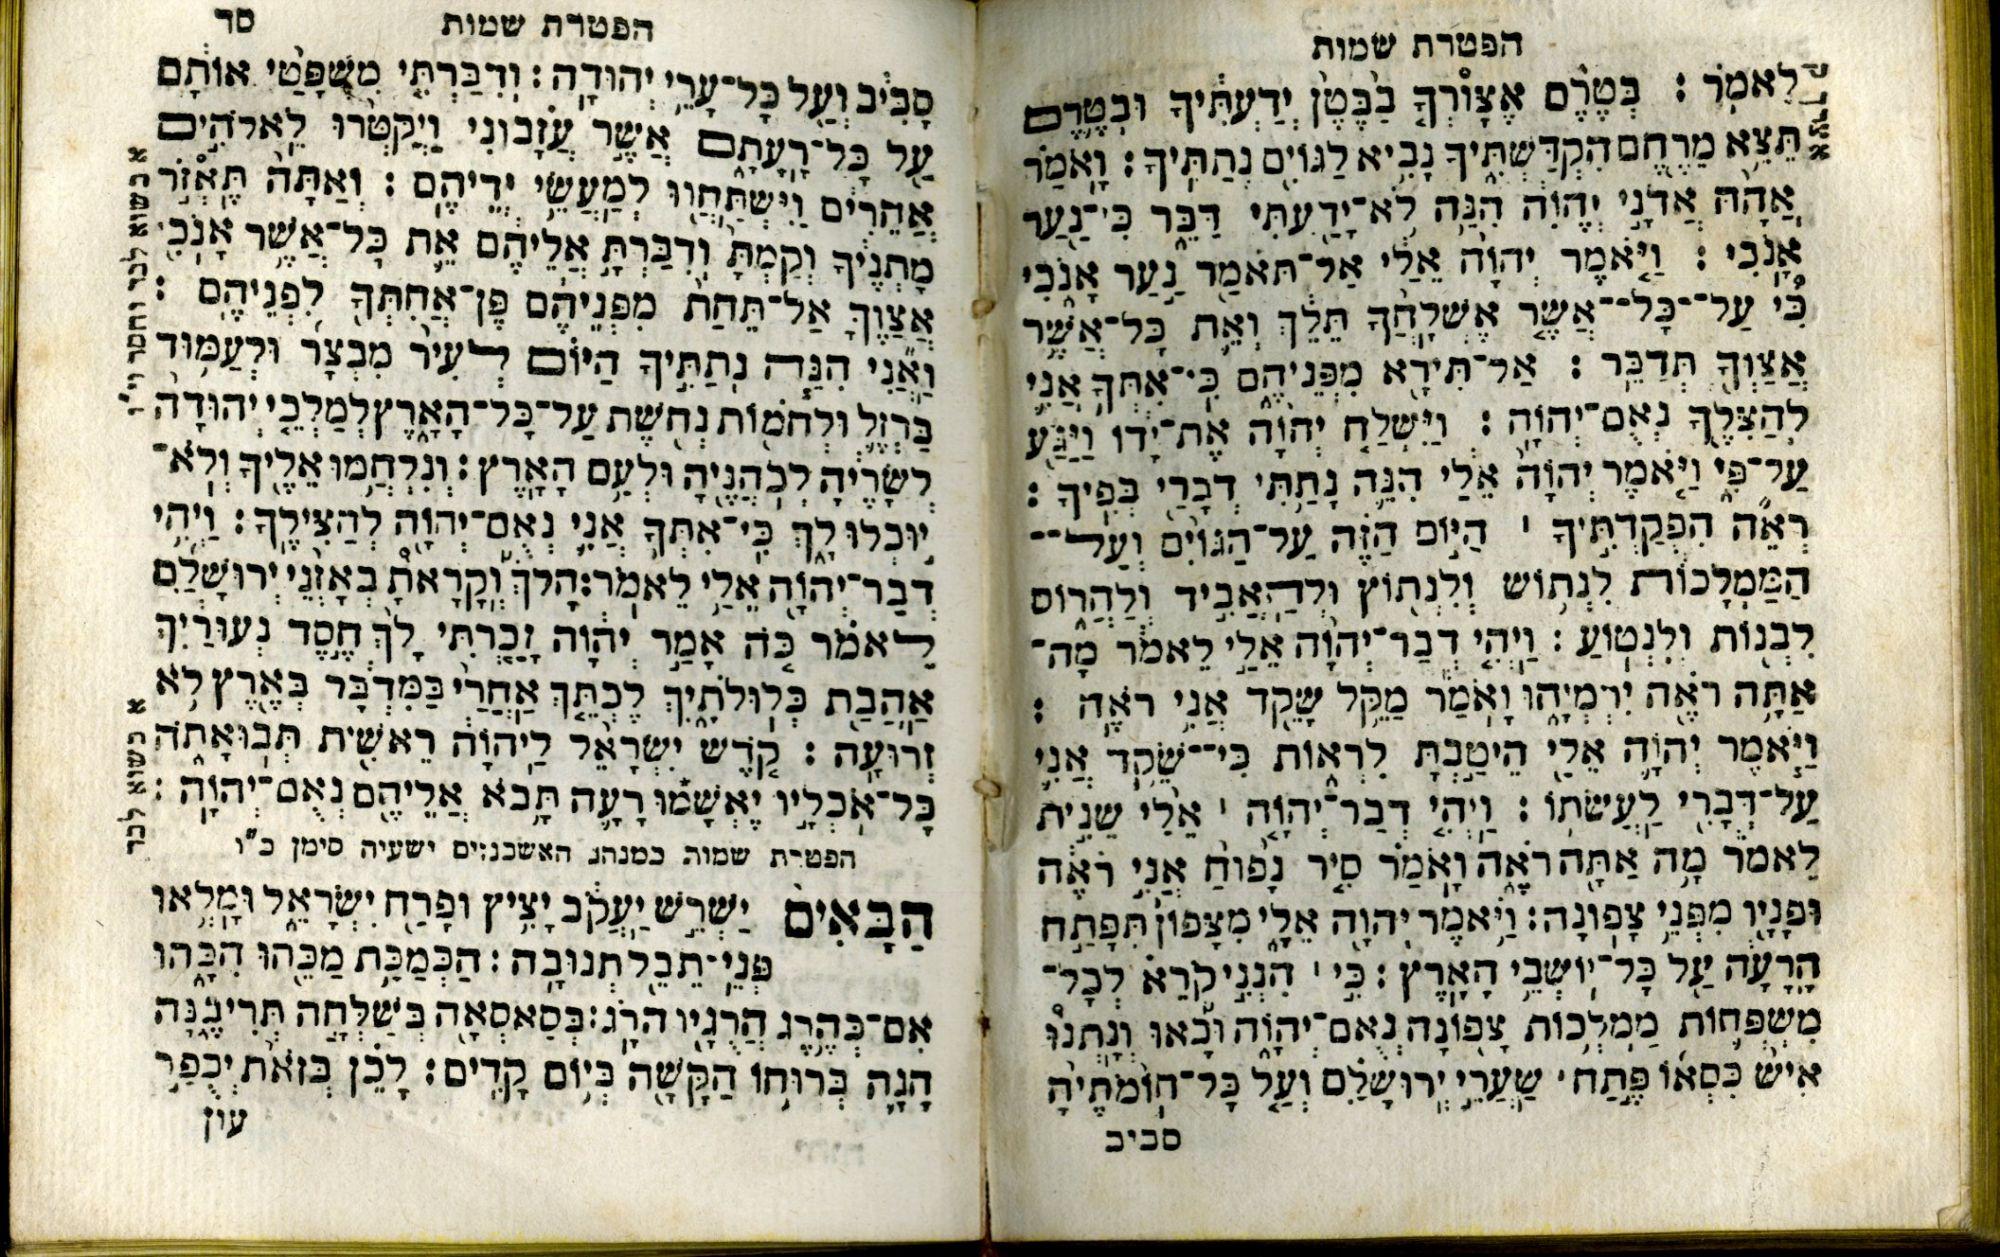 הפטרת שמות
לֵאמֹר : בְּטֶרֶם אֶצָּוֹרְךָ בַבֶּטֶן יְדַעְתִּיךָ וּבְטֶרֶם
תֵּצֵא מֵרֶחֶם הִקְדַּשְׁתִּיךָ נָבִיא לַגּוֹיִם נְתַתִּיךָ : וָאֹמַר
אֲהָהּ אֲדֹנָי יְהֶוִֹה הִנֵּה לֹא־יָדַעְתִּי דַּבֵּר כִּי־נַעַר
אָנֹכִי : וַיֹּאמֶר יְהוָֹה אֵלַי אַל־תֹּאמַר נַעַר אָנֹכִי
כִּי עַל־־כָּל־־אֲשֶׁר אֶשְׁלָחֲךָ תֵּלֵךְ וְאֵת כָּל־אֲשֶׁר
אֲצַוְּךָ תְּדַבֵּר : אַל־תִּירָא מִפְּנֵיהֶם כִּי־אִתְּךָ אֲנִי
לְהַצִּלֶךָ נְאֻם־יְהוָֹה : וַיִּשְׁלַח יְהוָֹה אֶת־יָדוֹ וַיַּגַּע
עַל־פִּי וַיֹּאמֶר יְהוָֹה אֵלַי הִנֵּה נָתַתִּי דְבָרַי בְּפִיךָ :
רְאֵה הִפְקַדְתִּיךָ ׀ הַיּוֹם הַזֶּה עַל־הַגּוֹיִם וְעַל־־
הַמַּמְלָכוֹת לִנְתוֹשׁ וְלִנְתוֹץ וּלְהַאֲבִיד וְלַהֲרוֹס
לִבְנוֹת וְלִנְטוֹעַ : וַיְהִי דְבַר־יְהוָֹה אֵלַי לֵאמֹר מָה־
אַתָּה רֹאֶה יִרְמְיָהוּ וָאֹמַר מַקֵּל שָׁקֵד אֲנִי רֹאֶה :
וַיֹּאמֶר יְהוָֹה אֵלַי הֵיטַבְתָּ לִרְאוֹת כִּי־־שֹׁקֵד אֲנִי
עַל־דְּבָרִי לַעֲשֹׂתוֹ : וַיְהִי דְבַר־יְהוָֹה ׀ אֵלַי שֵׁנִית
לֵאמֹר מָה אַתָּה רֹאֶה וָאֹמַר סִיר נָפוּחַ אֲנִי רֹאֶה
וּפָנָיו מִפְּנֵי צָפוֹנָה : וַיֹּאמֶר יְהוָֹה אֵלָי מִצָּפוֹן תִּפָּתַח
הָרָעָה עַל כָּל־יוֹשְׁבֵי הָאָרֶץ : כִּי ׀ הִנְנִי קֹרֵא לְכָל־
מִשְׁפְּחוֹת מַמְלְכוֹת צָפוֹנָה נְאֻם־יְהוָֹה וּבָאוּ וְנָתְנוּ
אִישׁ כִּסְאוֹ פֶּתַח ׀ שַׁעֲרֵי יְרוּשָׁלִַם וְעַל כָּל־חוֹמֹתֶיהָ
סביב
הפטרת שמות
סד
סָבִיב וְעַל כָּל־עָרֵי יְהוּדָה : וְדִבַּרְתִּי מִשְׁפָּטַי אוֹתָם
עַל כָּל־רָעָתָם אֲשֶׁר עֲזָבוּנִי וַיְקַטְּרוּ לֵאלֹהִים
אֲחֵרִים וַיִּשְׁתַּחֲווּ לְמַעֲשֵׂי יְדֵיהֶם : וְאַתָּה תֶּאְזֹר
מָתְנֶיךָ וְקַמְתָּ וְדִבַּרְתָּ אֲלֵיהֶם אֵת כָּל־אֲשֶׁר אָנֹכִי
אֲצַוֶּךָּ אַל־תֵּחַת מִפְּנֵיהֶם פֶּן־אֲחִתְּךָ לִפְנֵיהֶם :
וַאֲנִי הִנֵּה נְתַתִּיךָ הַיּוֹם לְעִיר מִבְצָר וּלְעַמּוּד
בַּרְזֶל וּלְחֹמוֹת נְחֹשֶׁת עַל־כָּל־הָאָרֶץ לְמַלְכֵי יְהוּדָה
לְשָׂרֶיהָ לְכֹהֲנֶיהָ וּלְעַם הָאָרֶץ : וְנִלְחֲמוּ אֵלֶיךָ וְלֹא־
יוּכְלוּ לָךְ כִּי־אִתְּךָ אֲנִי נְאֻם־יְהוָֹה לְהַצִּילֶךָ : וַיְהִי
דְבַר־יְהוָֹה אֵלַי לֵאמֹר : הָלֹךְ וְקָרָאתָ בְאָזְנֵי יְרוּשָׁלִַם
לֵאמֹר כֹּה אָמַר יְהוָֹה זָכַרְתִּי לָךְ חֶסֶד נְעוּרַיִךְ
אַהֲבַת כְּלוּלֹתָיִךְ לֶכְתֵּךְ אַחֲרַי בַּמִּדְבָּר בְּאֶרֶץ לֹא
זְרוּעָה : קֹדֶשׁ יִשְׂרָאֵל לַיהוָֹה רֵאשִׁית תְּבוּאָתֹה
כָּל־אֹכְלָיו יֶאְשָׁמוּ רָעָה תָּבֹא אֲלֵיהֶם נְאֻם־יְהוָֹה :
הפטרת שמות כמנהג האשכנזים ישעיה סימן כ״ז
הַבָּאִים יַשְׁרֵשׁ יַעֲקֹב יָצִיץ וּפָרַח יִשְׂרָאֵל וּמָלְאוּ
פְנֵי־תֵבֵל תְּנוּבָה : הַכְּמַכַּת מַכֵּהוּ הִכָּהוּ
אִם־כְּהֶרֶג הֲרֻגָיו הֹרָג : בְּסַאסְּאָה בְּשַׁלְחָהּ תְּרִיבֶנָּה
הָגָה בְּרוּחוֹ הַקָּשָׁה בְּיוֹם קָדִים : לָכֵן בְּזֹאת יְכֻפַּר
עון